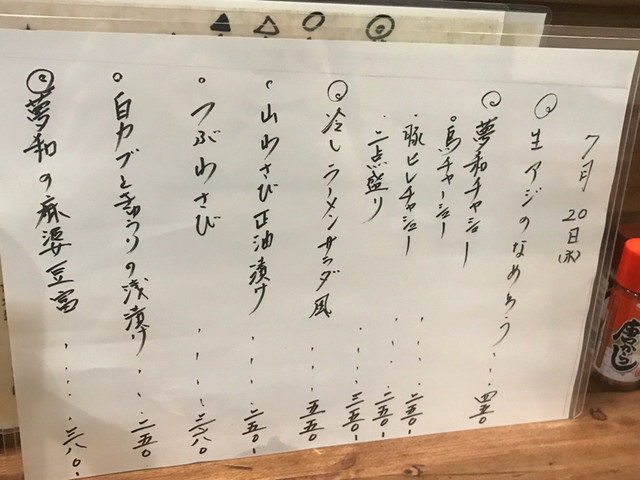 7月20日(水)
◎生アジのなめろう・・・四五〇
◎夢和チャーシュー
・鳥チャーシュー・・・二五〇-
・豚ヒレチャシュー・・・二五〇-
・二点盛り・・・三五〇-
◎冷しラーメンサラダ風・・・五五〇
・山わさび正油漬け・・・二五〇-
・つぶわさび・・・三八〇-
・白カブときゅうりの浅漬け・・・二五〇
◎夢和の麻婆豆富・・・・三八〇-
唐がらし